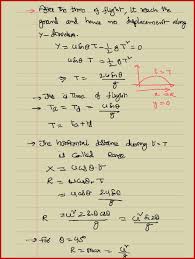 After Time of flight, it reach the
ground and hence no displacement along
Y-direction.
Y = u sinθ T - 1/2 g T² = 0
u sinθ T = 1/2 g T²
t = T
y = 0
=> T = 2u sinθ / g
→ This is Time of flight
→ Ta = Td = u sinθ / g
T = Ta + Td
→ The horizontal distance during t = T
is called Range
X = u cosθ t
R = u cosθ T
= u cosθ 2u sinθ / g
R = u² 2 sinθ cosθ / g = u² sin2θ / g
→ For θ = 45°
R = max = u² / g